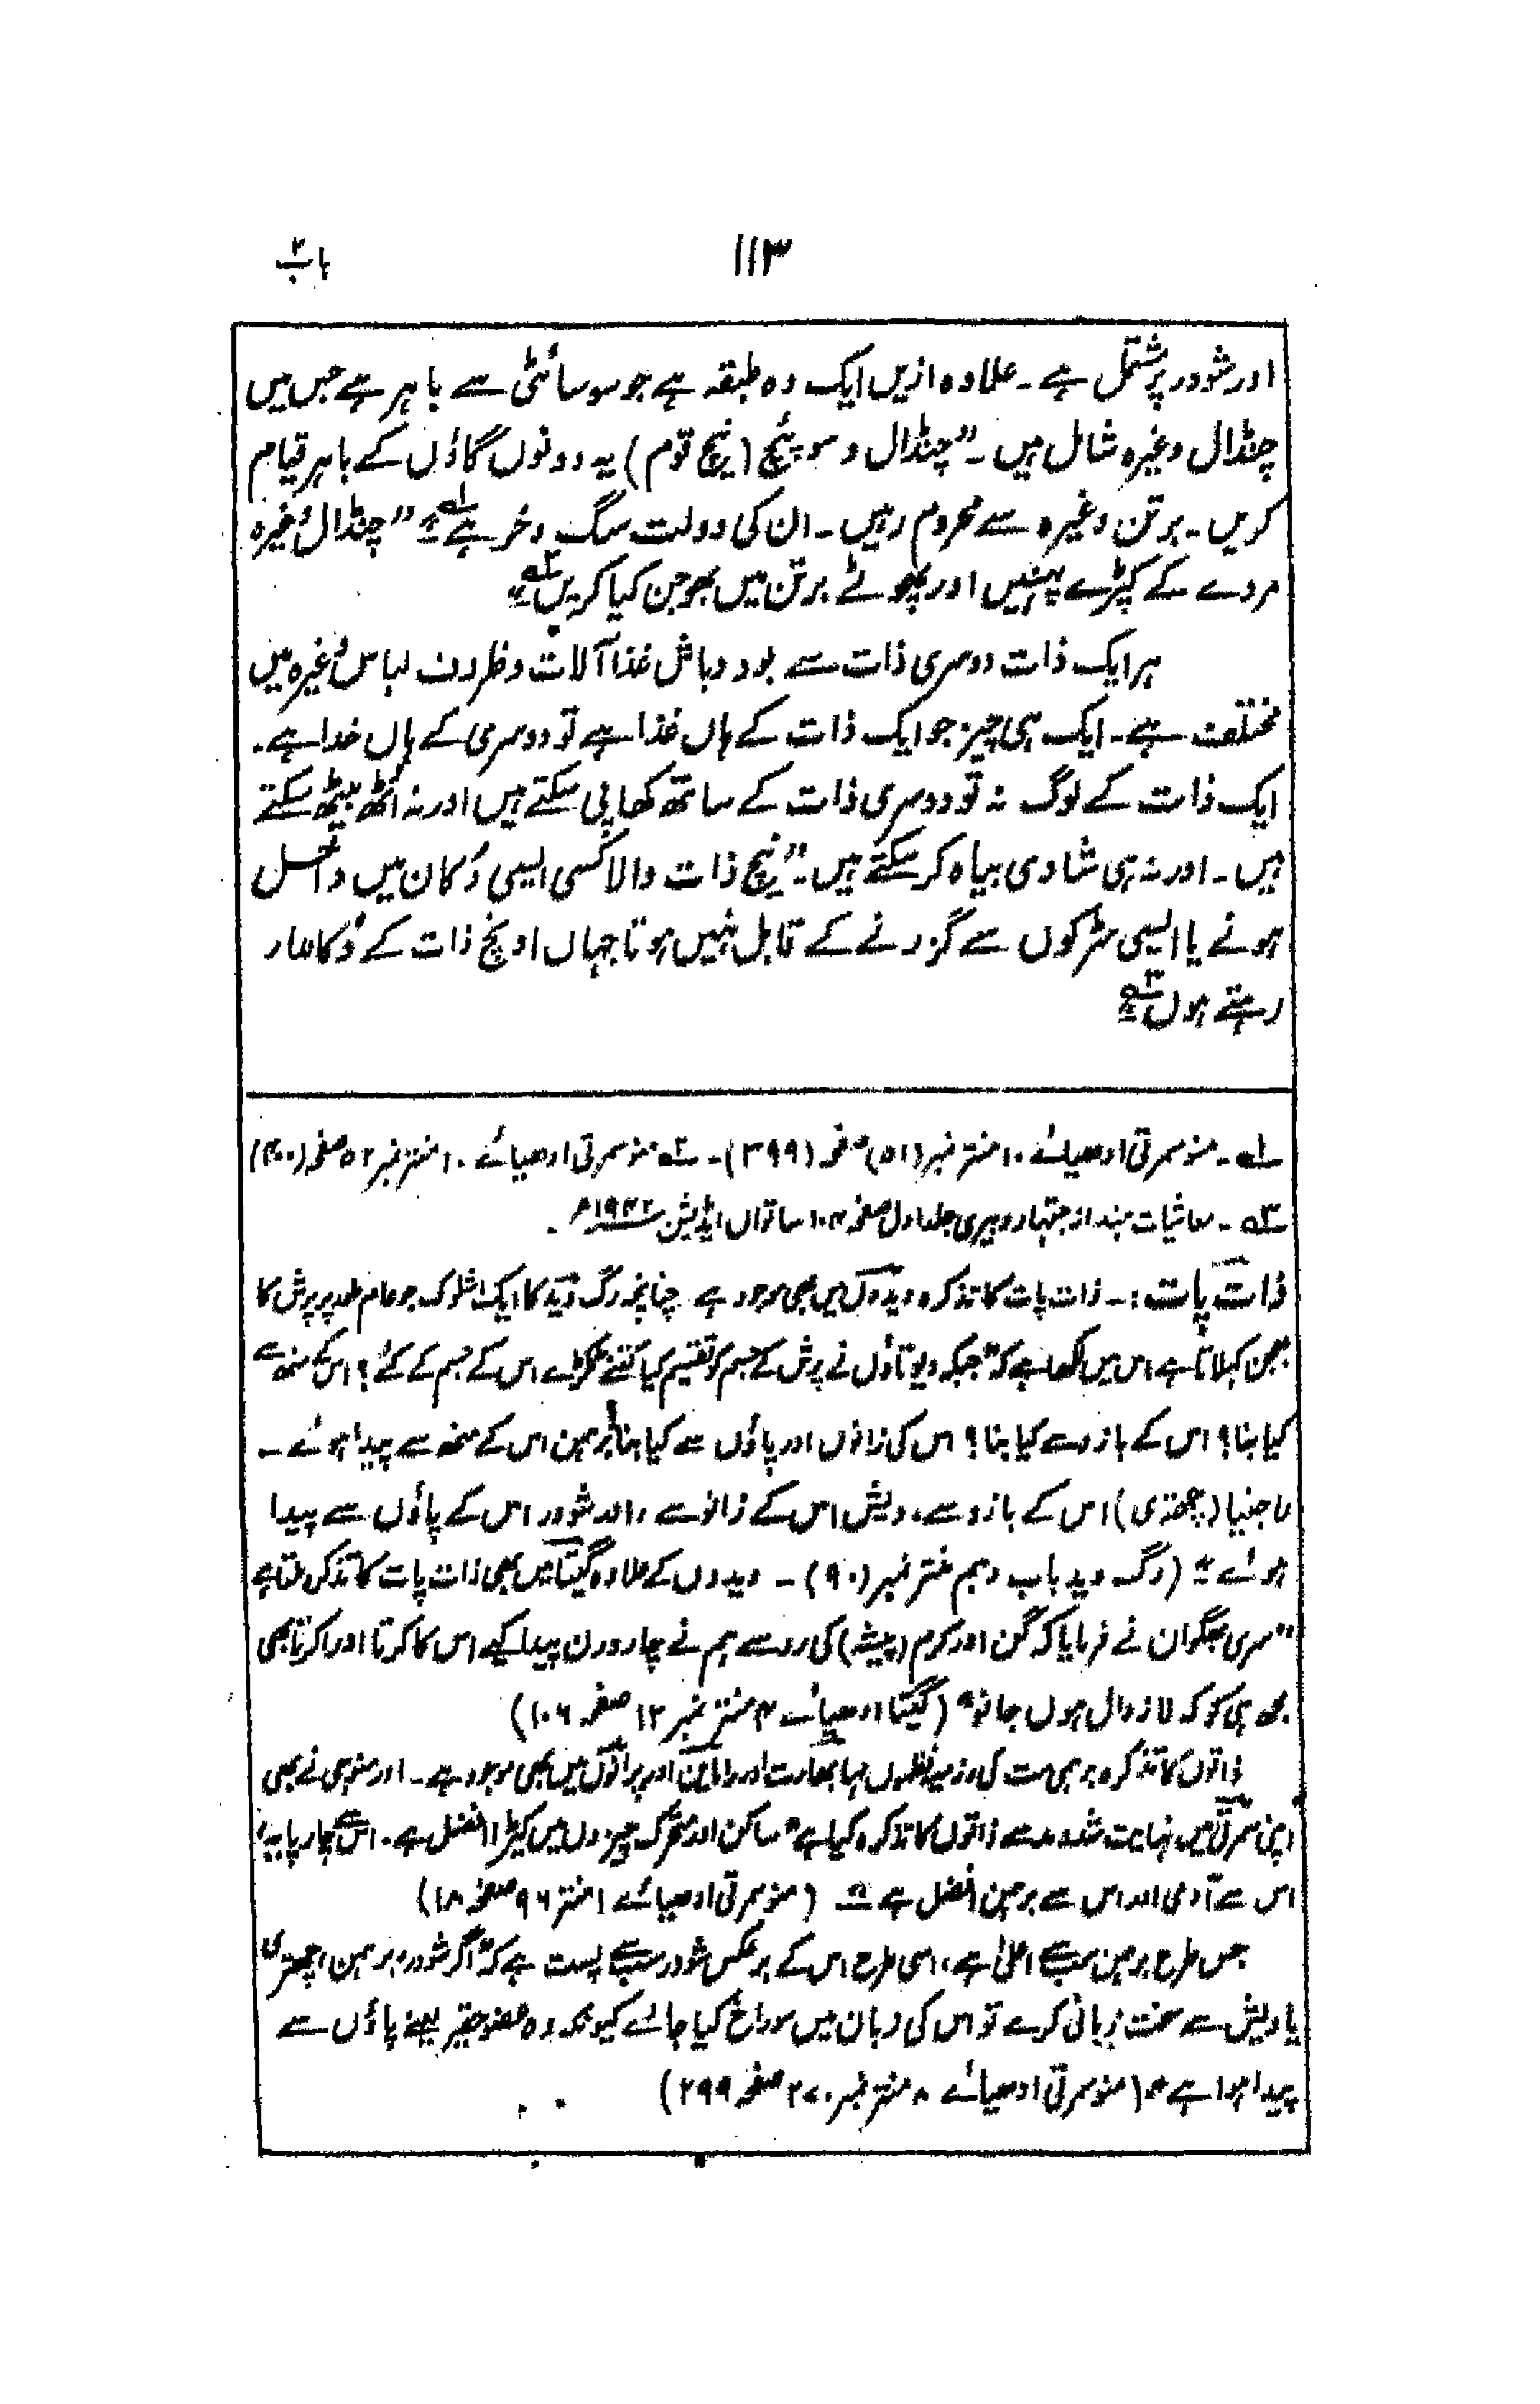 باب ۲
۱۱۳
اور شودر پر مشتمل ہے۔ علاوہ ازیں ایک وہ طبقہ ہے جو سوسائٹی سے باہر ہے جس میں
چنڈال وغیرہ شامل ہیں۔ "چنڈال و سوپچ (نیچ قوم) یہ دونوں گاؤں کے باہر قیام
کریں۔ برتن وغیرہ سے محروم رہیں۔ ان کی دولت سگ و خر ہے" ۱؎ "چنڈال وغیرہ
مردے کے کپڑے پہنیں اور پھوٹے برتن میں بھوجن کیا کریں" ۲؎
ہر ایک ذات دوسری ذات سے بود و باش غذا آلات و ظروف لباس وغیرہ میں
مختلف ہے۔ ایک ہی چیز جو ایک ذات کے ہاں غذا ہے تو دوسری کے ہاں خدا ہے۔
ایک ذات کے لوگ نہ تو دوسری ذات کے ساتھ کھا پی سکتے ہیں اور نہ اٹھ بیٹھ سکتے
ہیں۔ اور نہ ہی شادی بیاہ کر سکتے ہیں۔ "نیچ ذات والا کسی ایسی دُکان میں داخل
ہونے یا ایسی سڑکوں سے گزرنے کے قابل نہیں ہوتا جہاں اونچ ذات کے دُکاندار
رہتے ہوں" ۳؎
۱؎ ۔ منو سمرتی ادھیائے ۱۰ منتر نمبر (۵۱) صفحہ (۳۹۹)۔ ۲؎ منو سمرتی ادھیائے ۱۰ منتر نمبر ۵۲ صفحہ (۴۰۰)
۳؎ ۔ معاشیات ہند از جتھار و بیری جلد اول صفحہ ۱۰۴ ساتواں ایڈیشن ۱۹۴۲ء۔
ذات پات:۔ ذات پات کا تذکرہ ویدوں میں بھی موجود ہے چنانچہ رگ وید کا ایک اشلوک جو عام طور پر پرش کا
بھجن کہلاتا ہے اس میں لکھا ہے کہ "جبکہ دیوتاؤں نے پرش کے جسم کو تقسیم کیا کتنے ٹکڑے اس کے جسم کے کئے؟ اس کے منہ سے
کیا بنا؟ اس کے بازو سے کیا بنا؟ اس کی زانوں اور پاؤں سے کیا بنا؟ برہمن اس کے منھ سے پیدا ہوئے۔
راجنیا (چھتری) اس کے بازو سے، ویش اس کے زانو سے، اور شودر اس کے پاؤں سے پیدا
ہوئے" (رگ وید باب دہم منتر نمبر (۹۰)۔ ویدوں کے علاوہ گیتا میں بھی ذات پات کا تذکرہ ملتا ہے
"سری بھگوان نے فرمایا کہ گن اور کرم (پیشہ) کی رو سے ہم نے چار ورن پیدا کیے اس کا کرتا اور اکرتا بھی
مجھ ہی کو کہ لازوال ہوں جانو" (گیتا ادھیائے ۴ منتر نمبر ۱۳ صفحہ ۱۰۶)
ذاتوں کا تذکرہ برہمی مت کی رزمیہ نظموں مہابھارت اور رامائن اور پرانوں میں بھی موجود ہے۔ اور منو جی نے بھی
اپنی سمرتی میں نہایت شد و مد سے ذاتوں کا تذکرہ کیا ہے "ساکن اور متحرک چیزوں میں کیڑا افضل ہے۔ اس سے چار پایہ،
اس سے آدمی اور اس سے برہمن افضل ہے" (منو سمرتی ادھیائے ۱ منتر ۹۶ صفحہ ۱۸)
جس طرح برہمن سب سے اعلیٰ ہے، اسی طرح اس کے برعکس شودر سب سے پست ہے کہ "اگر شودر، برہمن، چھتری
یا ویش سے سخت زبانی کرے تو اس کی زبان میں سوراخ کیا جائے کیونکہ وہ عضو حقیر یعنے پاؤں سے
پیدا ہوا ہے" (منو سمرتی ادھیائے ۸ منتر نمبر ۲۷۰ صفحہ ۲۹۹)